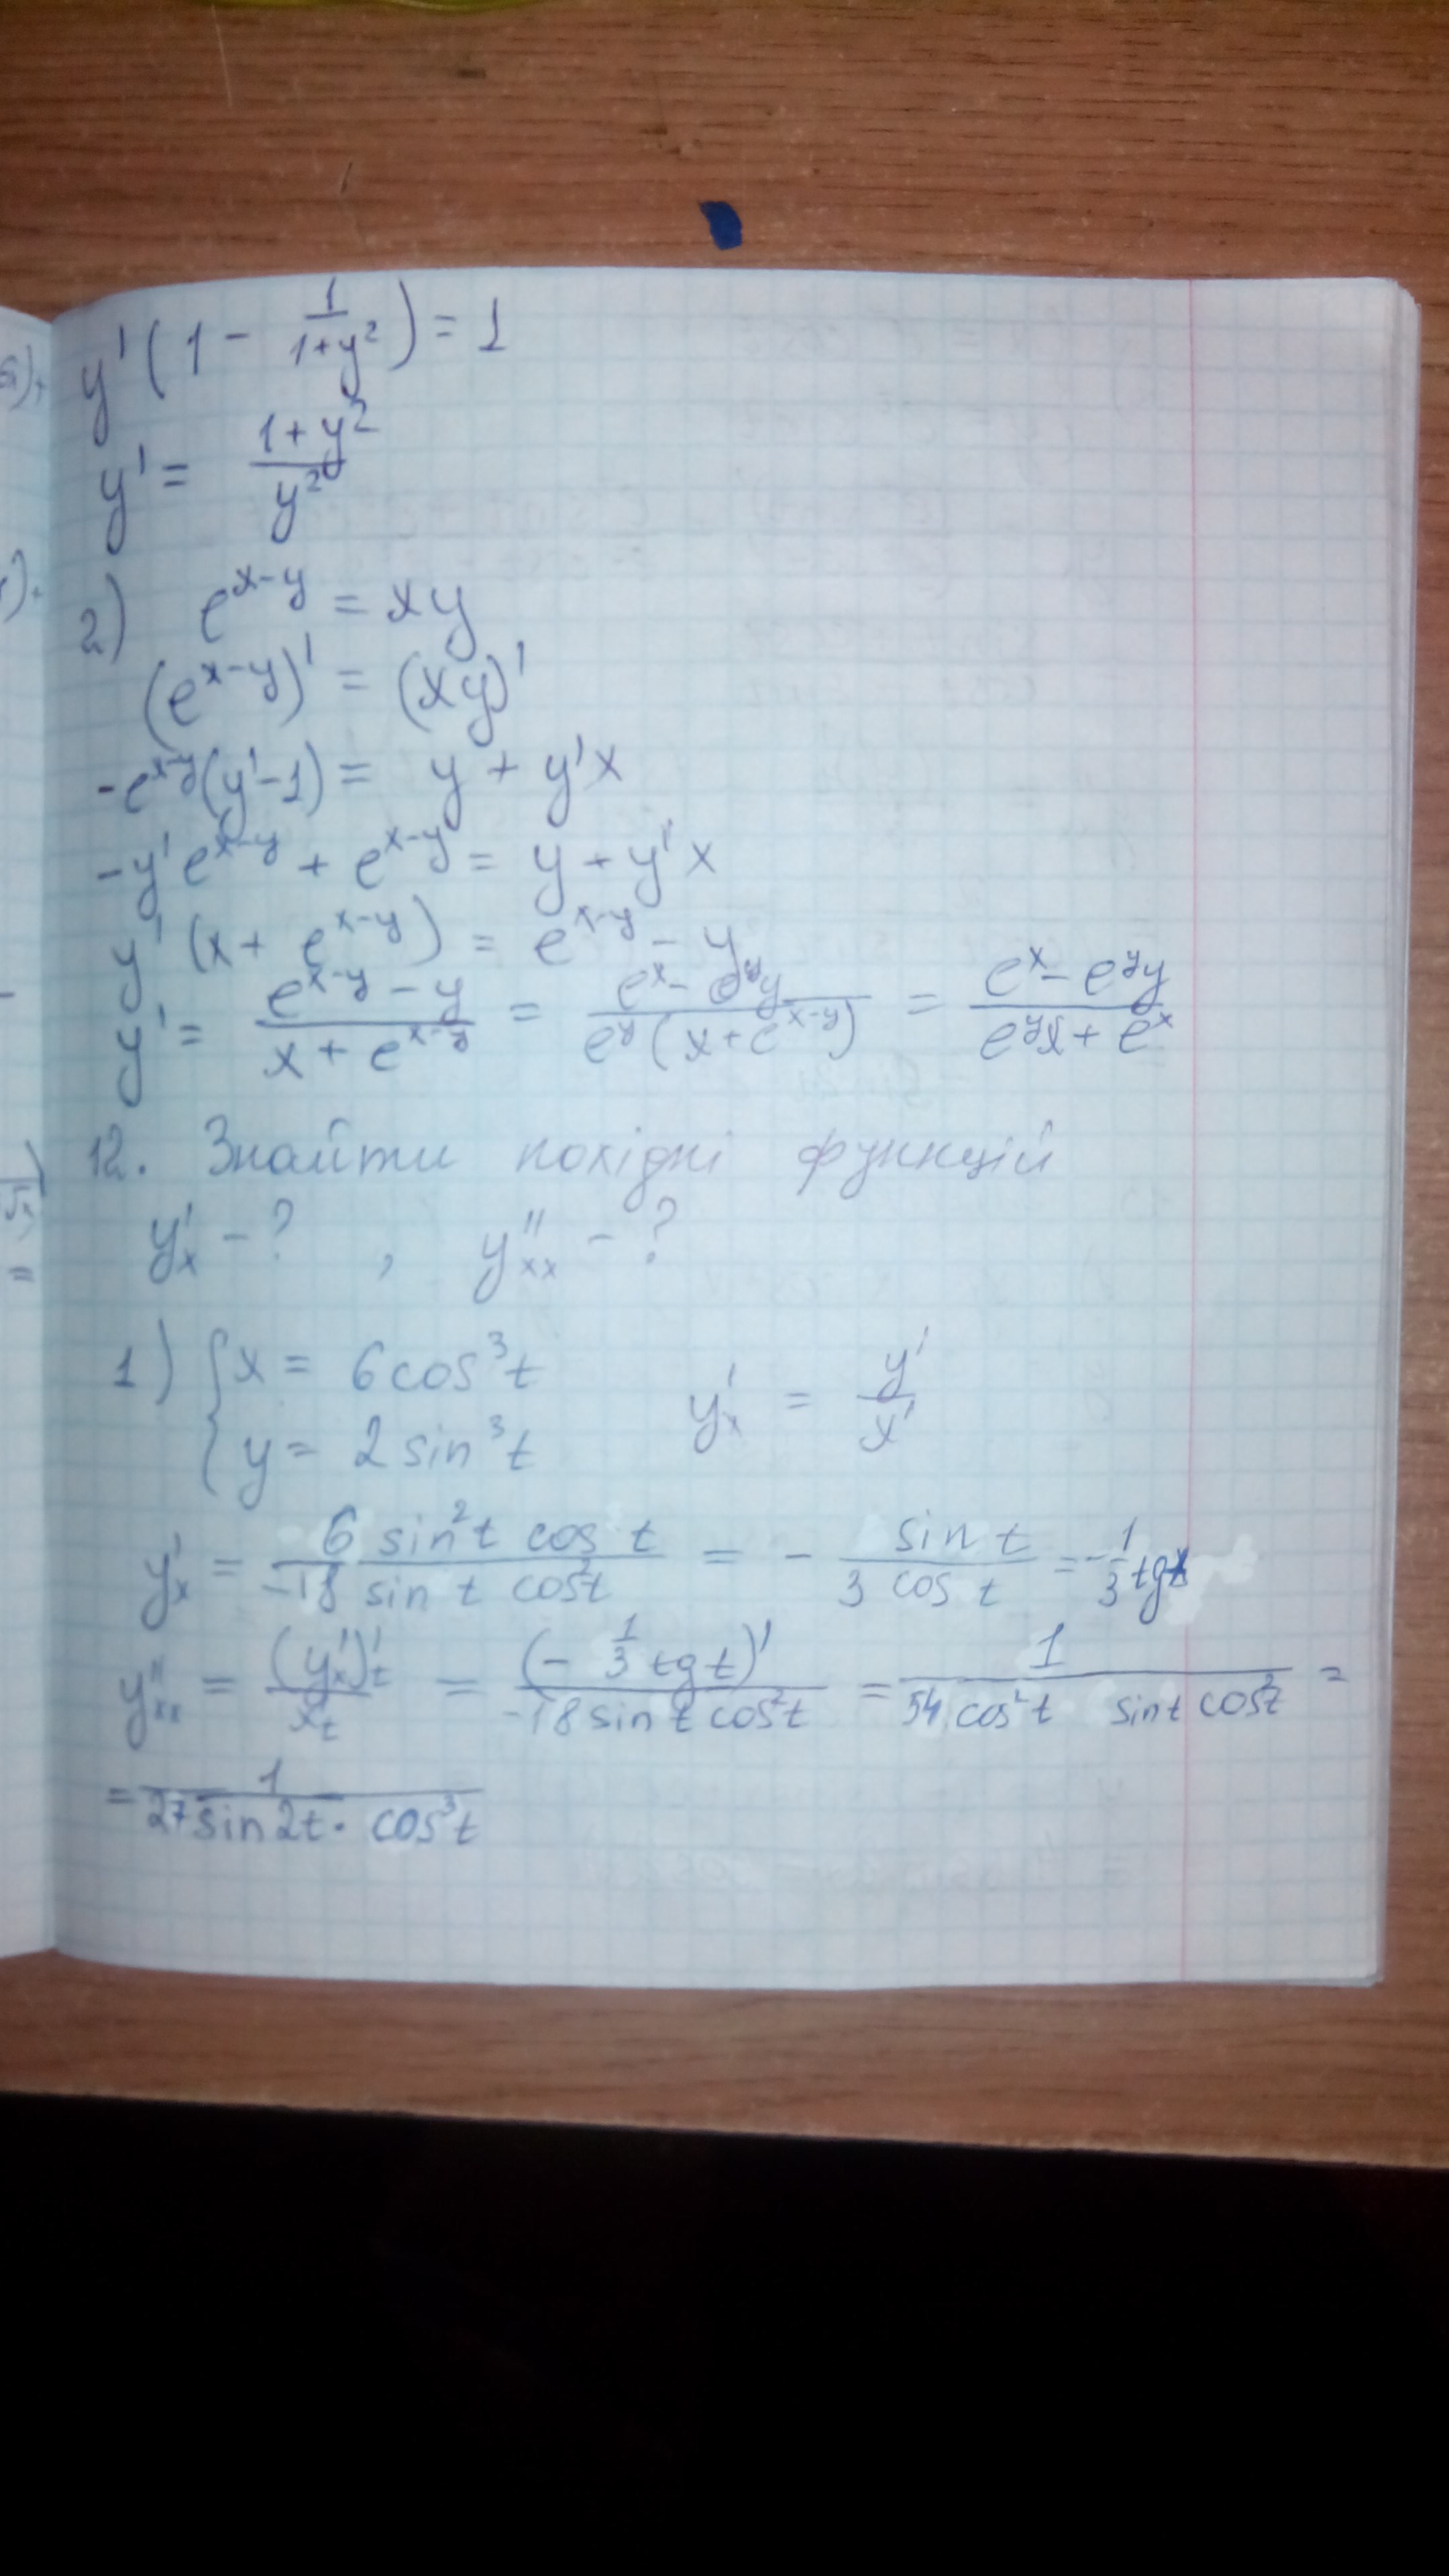 y' (1 - 1/(1+y²)) = 1
y' = (1+y²)/y²
2) e^(x-y) = xy
(e^(x-y))' = (xy)'
-e^(x-y)(y'-1) = y + y'x
-y'e^(x-y) + e^(x-y) = y + y'x
y' (x + e^(x-y)) = e^(x-y) - y
y' = (e^(x-y) - y)/(x + e^(x-y)) = (e^x - e^y y)/(e^y (x + e^(x-y))) = (e^x - e^y y)/(e^y x + e^x)
12. Знайти похідні функцій
y'ₓ - ? , y''ₓₓ - ?
1) { x = 6cos³t
y = 2sin³t
y'ₓ = y'/x'
y'ₓ = (6 sin²t cos t)/(-18 sin t cos²t) = - (sin t)/(3 cos t) = -1/3 tg t
y''ₓₓ = (y'ₓ)'ₜ/xₜ = (- 1/3 tg t)'/(-18 sin t cos²t) = 1/(54 cos²t · sin t cos²t) =
= 1/(27 sin 2t · cos³t)